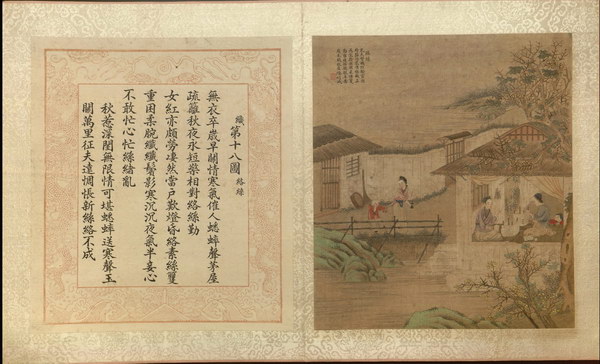 織第十八圖 絡絲
無衣卒歲早關情寒氣催人蟋蟀聲茅屋
疏籬秋夜永短檠相對絡絲勤
女紅亦頗勞凄然當戶歎燈昏絡素絲雙
重因柔腕纖纖鬢影寒沉沉夜氣半妾心
不敢忙心忙絲緒亂
秋惹深閨無限情可堪蟋蟀送寒聲玉
關萬里征夫遠惆悵新絲絡不成